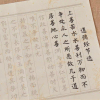 道德经节选
上善若水水善利万物而不
争处众人之所恶故几于道
居善地心善